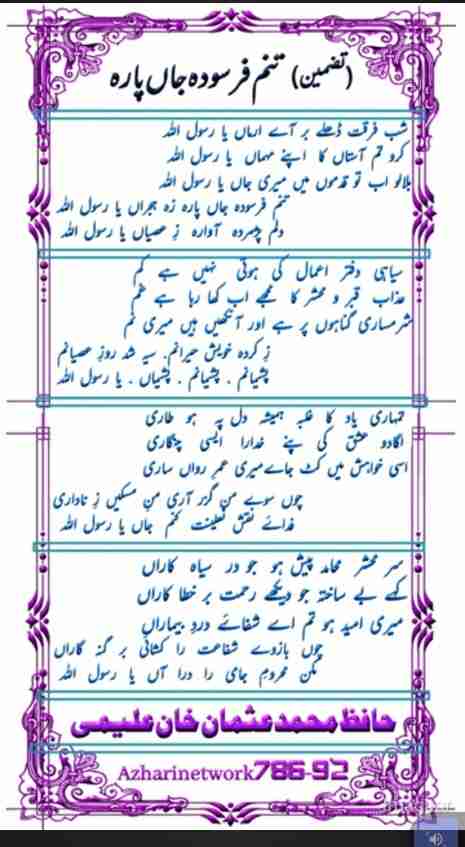 (تضمین) تنم فرسودہ جاں پارہ
شب فرقت ڈھلے بر آے ارماں یا رسول اللہ
کرو تم آستاں کا اپنے مہماں یا رسول اللہ
بلالو اب تو قدموں میں میری جاں یا رسول اللہ
تنم فرسودہ جاں پارہ زہ ہجراں یا رسول اللہ
دلم پژمردہ آوارہ زِ عصیاں یا رسول اللہ
سیاہی دفتر اعمال کی ہوتی نہیں ہے کم
عذاب قبر و محشر کا مجھے اب کھا رہا ہے غم
شرمساری گناہوں پر ہے اور آنکھیں ہیں میری نم
زِ کردہ خویش حیرانم. سیہ شد روزِ عصیانم
پشیمانم . پشیمانم . پشیماں . یا رسول اللہ
تمہاری یاد کا غلبہ ہمیشہ دل پہ ہو طاری
لگادو عشق کی پنے خدارا ایسی چنگاری
اسی خواہش میں کٹ جاے میری عمرِ رواں ساری
چوں سوے من گزر آری منِ مسکیں زِ ناداری
فدائے نقش نعلینت کنم جاں یا رسول اللہ
سر محشر محامد پیش ہو جو در سیاہ کاراں
کہے بے ساختہ جو دیکھے رحمت بر خطا کاراں
میری امید ہو تم اے شفائے دردِ بیماراں
چوں بازوے شفاعت را کشائی بر گنہ گاراں
مکن محرومِ جامی را درا آں یا رسول اللہ
حافظ محمد عثمان خان علیمی
Azharinetwork786-92